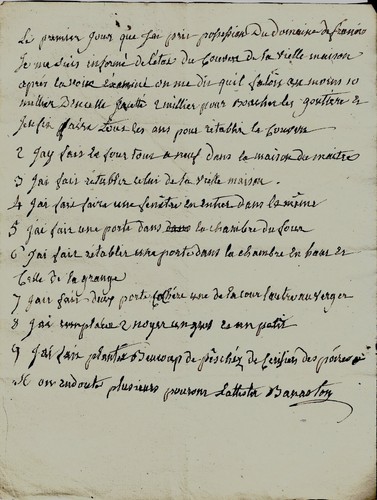 Le premier jour que jai pris possession du domaine de franco
Je me suis informé de letat du Couvert de la vielle maison
après lavoir éxaminé on me dit quil faloit au moins 10
millier 2 millier pour boucher les goutiere et
faire tous les ans pour rétablir le Couvert
2 Jay fait le four tous a neuf dans la maison du maitre
3 Jai fait retablir celui de la vieille maison.
4 Jai fait faire une fenetre en entier dans la même
5 Jai fait une porte dans la chambre du four
6 Jai fait rétablir une porte dans la chambre en haut et
Celle de la grange
7 Jait fait deux porte une de la cour lautre au verger
8 Jai remplacé 2 noyer un gros et un petit
9 Jai fait planter Beaucoup de pêschéz de Cerisier des poires
on en doute plusieurs pouront lattester